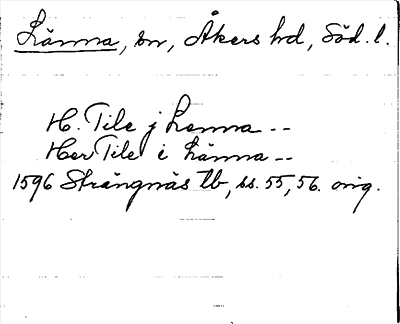 Länna, sn, Åkers hd, Söd. l.
H. Tile j Lenna --
Her Tile i Länna --
1596 Strängnäs tb, ss. 55, 56. orig.